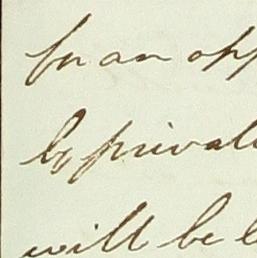 for an opp
by privat
will be l